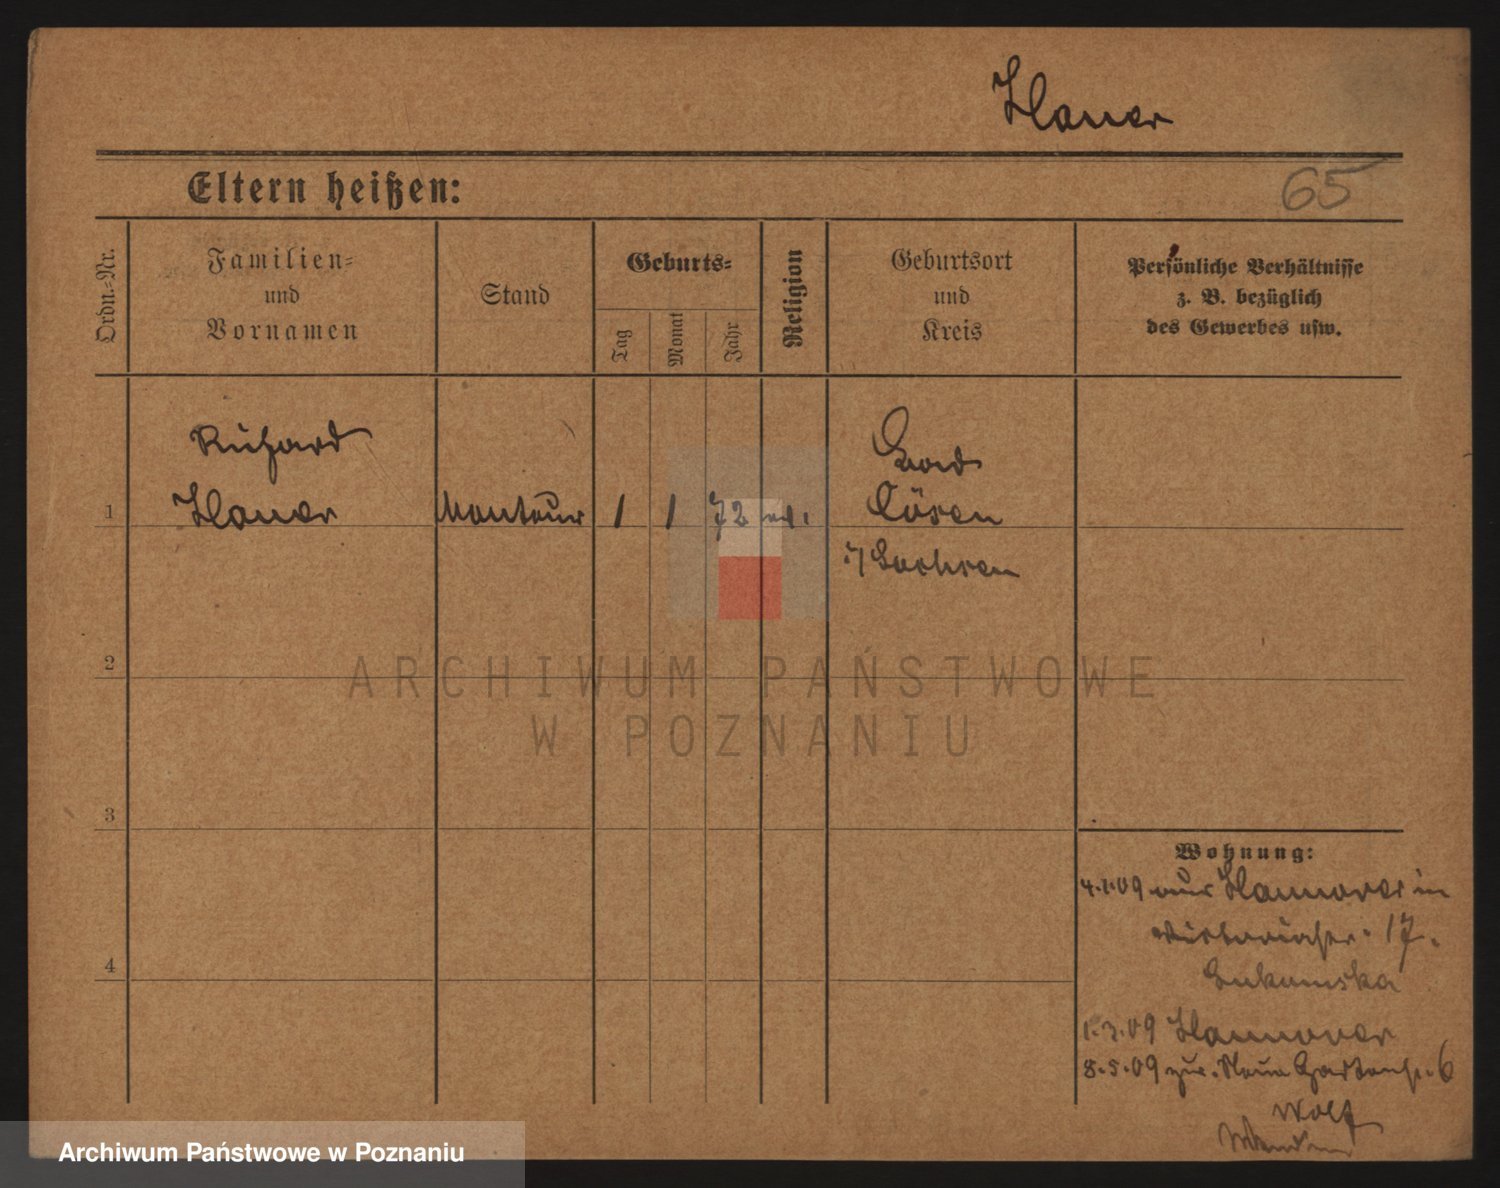 Hauer
Eltern heißen:
65
Ordn.-Nr.
Familien-
und
Vornamen
Stand
Geburts-
Tag
Monat
Jahr
Religion
Geburtsort
und
Kreis
Persönliche Verhältnisse
z. B. bezüglich
des Gewerbes usw.
Richard
1 Hauer Monteur 1 1 72 ev. Bad
Cösen
i/ Sachsen
2
ARCHIWUM PAŃSTWOWE
W POZNANIU
3
Wohnung:
4.1.09 aus Hannover in
Victoriastr. 17.
4
1.3.09 Hannover
8.5.09 zur. Neue Gartenstr. 6
Wolf
Archiwum Państwowe w Poznaniu